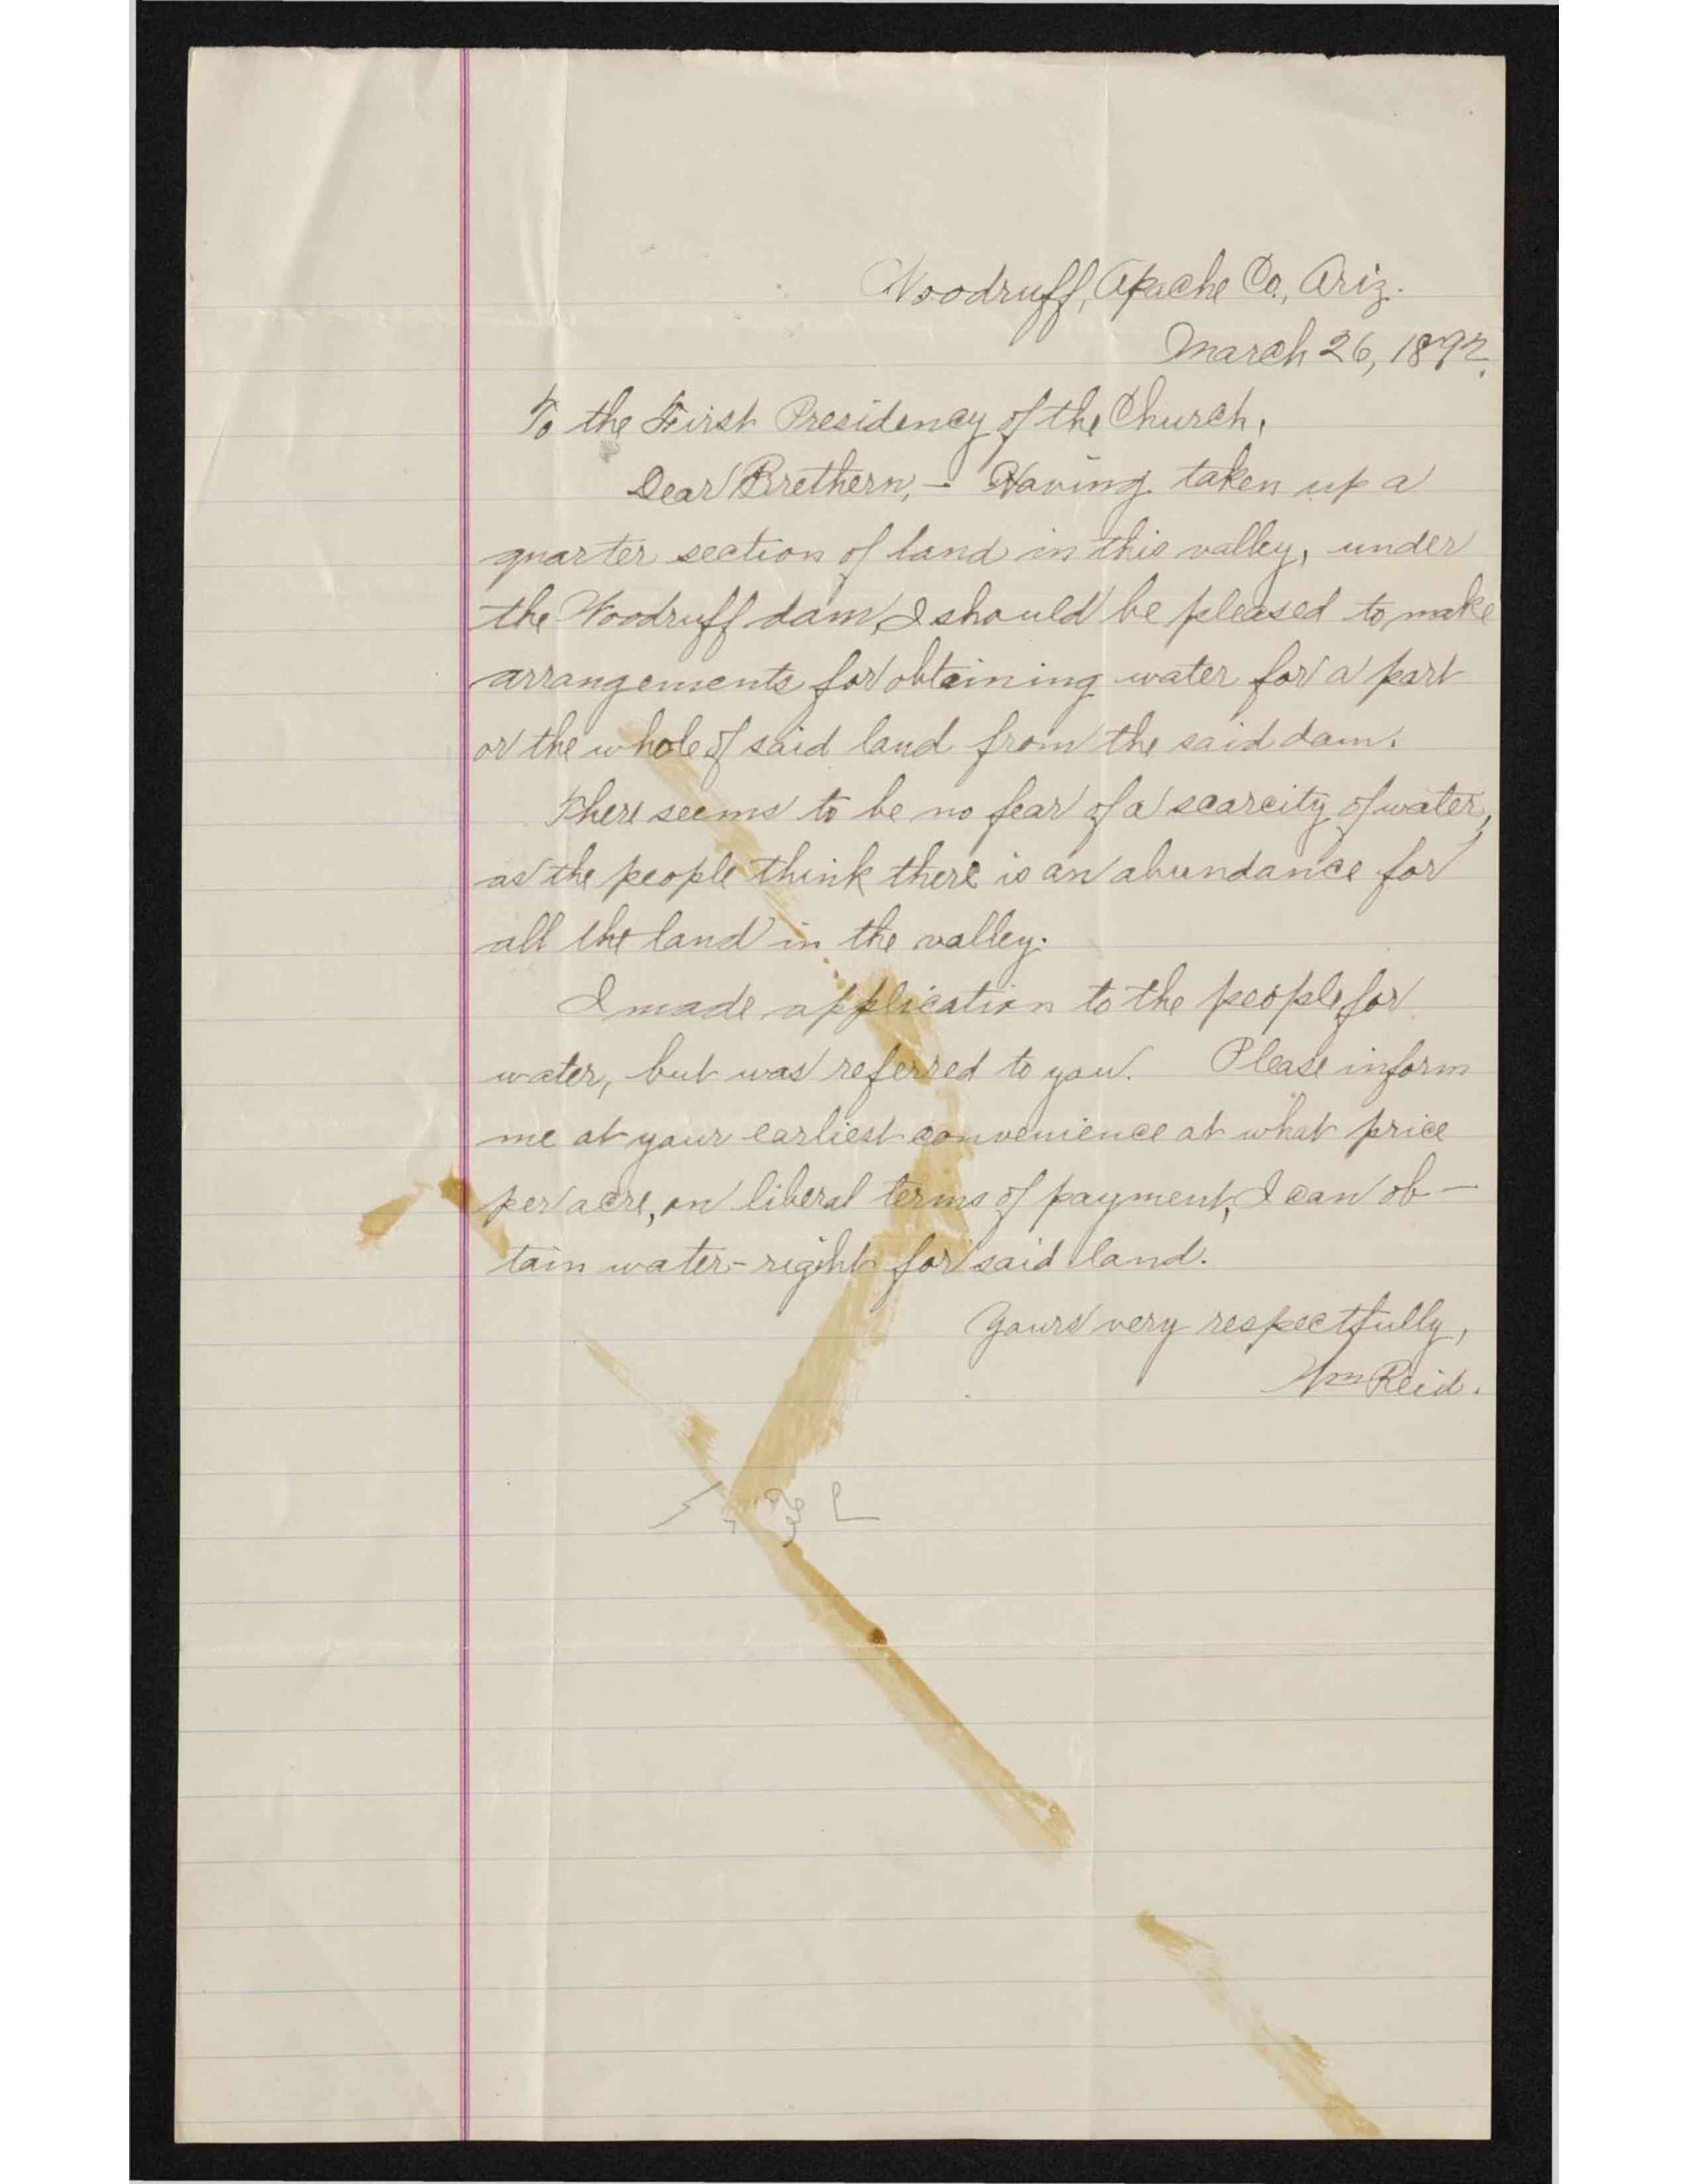 Woodruff, Apache Co., Ariz.
March 26, 1892.
To the First Presidency of the Church,
Dear Brethern,- Having taken up a
quarter section of land in this valley, under
the Woodruff dam, I should be pleased to make
arrangements for obtaining water for a part
or the whole of said land from the said dam.
There seems to be no fear of a scarcity of water,
as the people think there is an abundance for
all the land in the valley.
I made application to the people for
water, but was referred to you. Please inform
me at your earliest convenience at what price
per acre, on liberal terms of payment, I can ob-
tain water-right for said land.
Yours very respectfully,
Wm Reid.